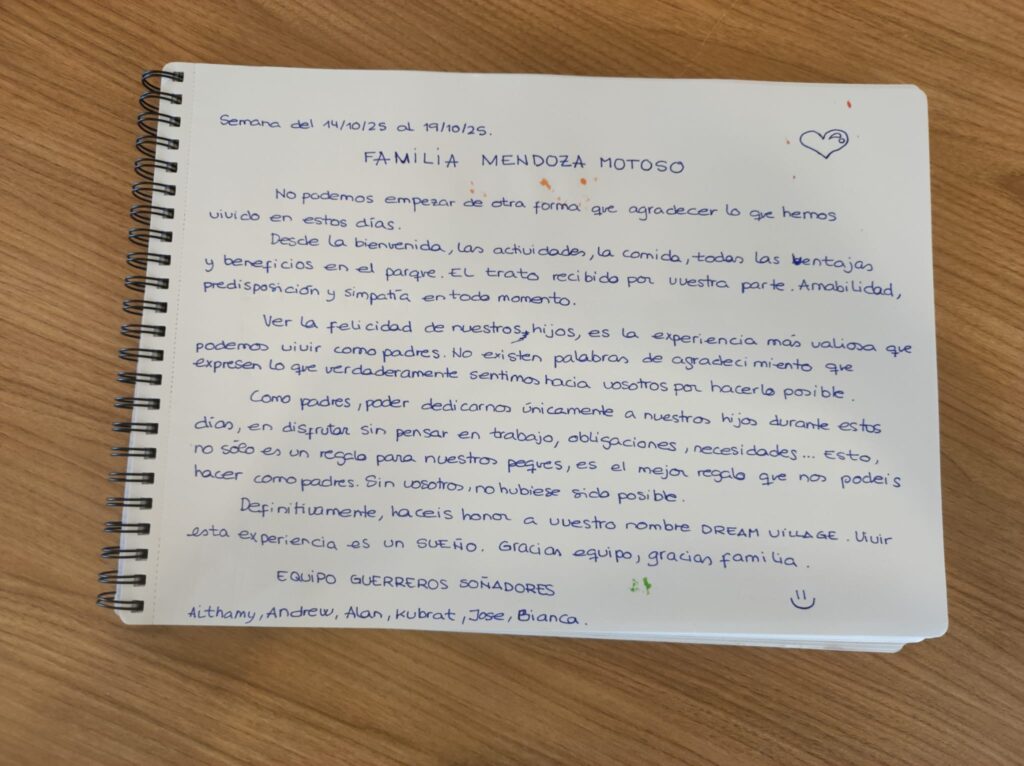 Semana del 14/10/25 al 19/10/25.
FAMILIA MENDOZA MOTOSO
No podemos empezar de otra forma que agradecer lo que hemos
vivido en estos días.
Desde la bienvenida, las actividades, la comida, todas las ventajas
y beneficios en el parque. EL trato recibido por vuestra parte. Amabilidad,
predisposición y simpatía en todo momento.
Ver la felicidad de nuestros hijos, es la experiencia más valiosa que
podemos vivir como padres. No existen palabras de agradecimiento que
expresen lo que verdaderamente sentimos hacia vosotros por hacerlo posible.
Como padres, poder dedicarnos únicamente a nuestros hijos durante estos
días, en disfrutar sin pensar en trabajo, obligaciones, necesidades... Esto,
no sólo es un regalo para nuestros peques, es el mejor regalo que nos podeis
hacer como padres. Sin vosotros, no hubiese sido posible.
Definitivamente, haceis honor a vuestro nombre DREAM VILLAGE. Vivir
esta experiencia es un SUEÑO. Gracias equipo, gracias familia.
EQUIPO GUERREROS SOÑADORES
Aithamy, Andrew, Alan, Kubrat, Jose, Bianca.